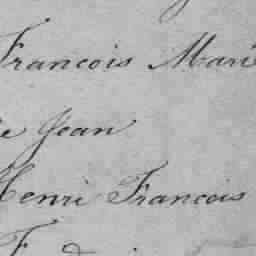 Francois Marie
Jean
Henri Francois